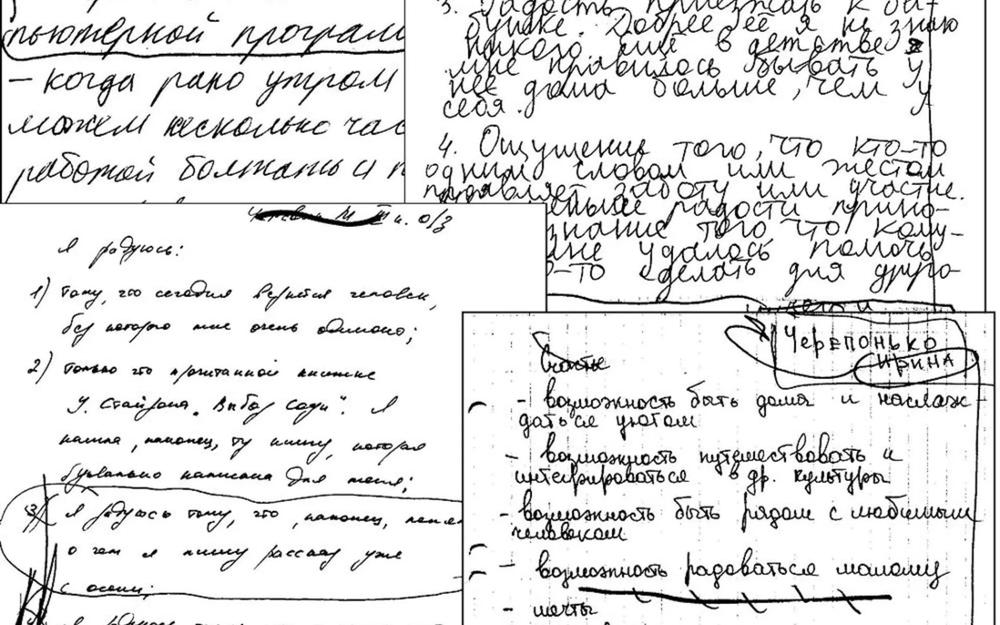 пьютерной програм
– когда рано утром
можем несколько час
работой болтать и п
3. Радость приезжать к ба-
бушке. Добрее её я не знаю
никого. Ещё в детстве
мне нравилось бывать у
неё дома больше, чем у
себя.
4. Ощущение того, что кто-то
одним словом или жестом
проявляет заботу или участие.
радости прино-
знание того что кому-
мне удалось помочь
о-то сделать для друго-
го и
и. о/з
Я радуюсь:
1) тому, что сегодня вернётся человек,
без которого мне очень одиноко;
2) только что прочитанной книжке
У. Стайрона „Выбор Софи". Я
нашла, наконец, ту книгу, которая
буквально написана для меня;
3) Я радуюсь тому, что, наконец,
о чем я пишу рассказ уже
с осени;
Черепонько
Ирина
Счастье
- возможность быть дома и наслаж-
даться уютом
- возможность путешествовать и
интегрироваться в др. культуры
- возможность быть рядом с любимым
человеком
- возможность радоваться малому
- мечты